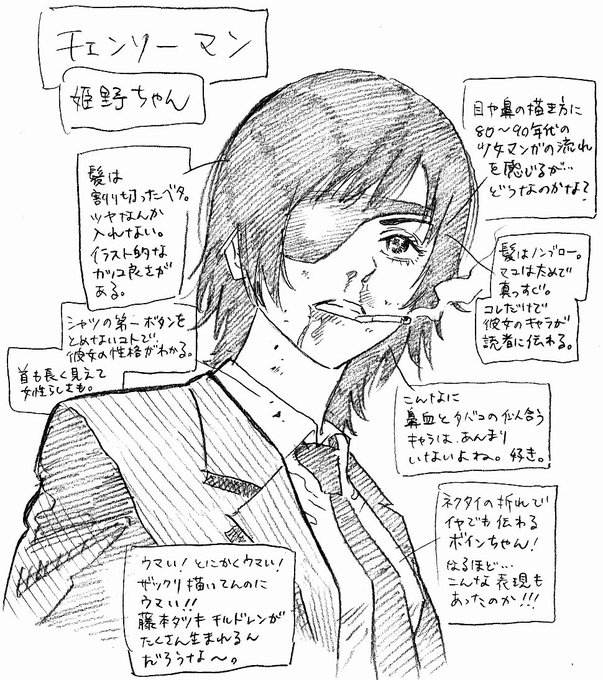 チェンソーマン
姫野ちゃん
髪は
割り切ったベタ。
ツヤなんか
入れない。
イラスト的な
カッコ良さが
ある。
目や鼻の描き方に
80〜90年代の
少女マンガの流れ
を感じるが…
どうなのかな?
髪はノンブロー。
マユは太めで
真っすぐ。
コレだけで
彼女のキャラが
読者に伝わる。
シャツの第一ボタンを
とめないコトで、
彼女の性格がわかる。
首も長く見えて
女性らしさも。
こんなに
鼻血とタバコの似合う
キャラは、あんまり
いないよね。好き。
ネクタイの折れで
イヤでも伝わる
ボインちゃん!
なるほど…
こんな表現も
あったのか!!!
ウマい!とにかくウマい!
ザックリ描いてんのに
ウマい!!
藤本タツキチルドレンが
たくさん生まれるん
だろうな〜。